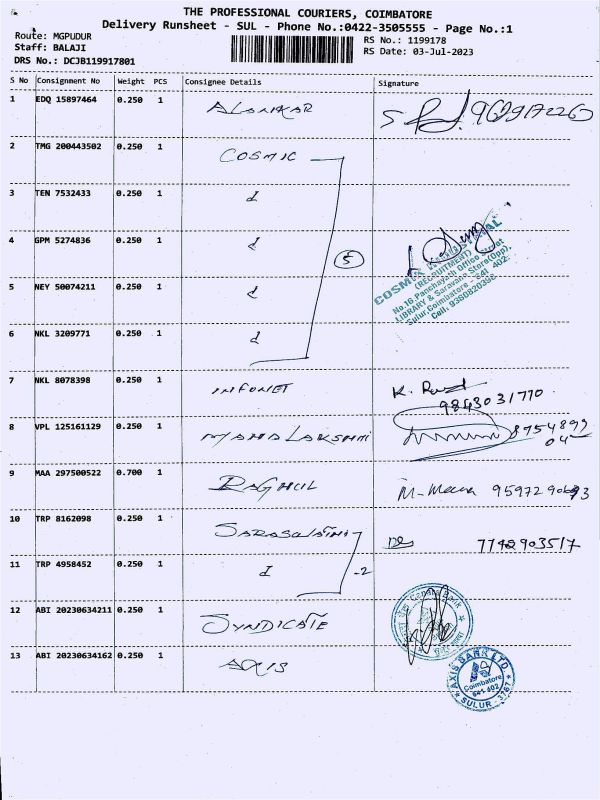 THE PROFESSIONAL COURIERS, COIMBATORE
Delivery Runsheet - SUL - Phone No.:0422-3505555 - Page No.:1
Route: MGPUDUR
Staff: BALAJI
DRS No.: DCJB119917801
RS No.: 1199178
RS Date: 03-Jul-2023
S No Consignment No Weight PCS Consignee Details Signature
1 EDQ 15897464 0.250 1 ALANKAR
2 TMG 200443502 0.250 1 COSMIC
3 TEN 7532433 0.250 1 d
4 GPM 5274836 0.250 1 d
5
COSMIC INDUSTRIAL
(RECRUITMENT)
No.16, Panchayath Office Street
LIBRARY & Saravana Store(Opp),
Sulur, Coimbatore - 641 402.
5 NEY 50074211 0.250 1 d
6 NKL 3209771 0.250 1 d
7 NKL 8078398 0.250 1 INFONET K.
9843031770
8 VPL 125161129 0.250 1 MAHALAKSHMI 8754899
04
9 MAA 297500522 0.700 1 RAGHUL M-Meena
10 TRP 8162098 0.250 1 SARASWATHI 7742903517
11 TRP 4958452 0.250 1 d -2
12 ABI 20230634211 0.250 1 SYNDICATE
13 ABI 20230634162 0.250 1 AXIS
AXIS BANK LTD.
Coimbatore
641 402
SULUR - 3767